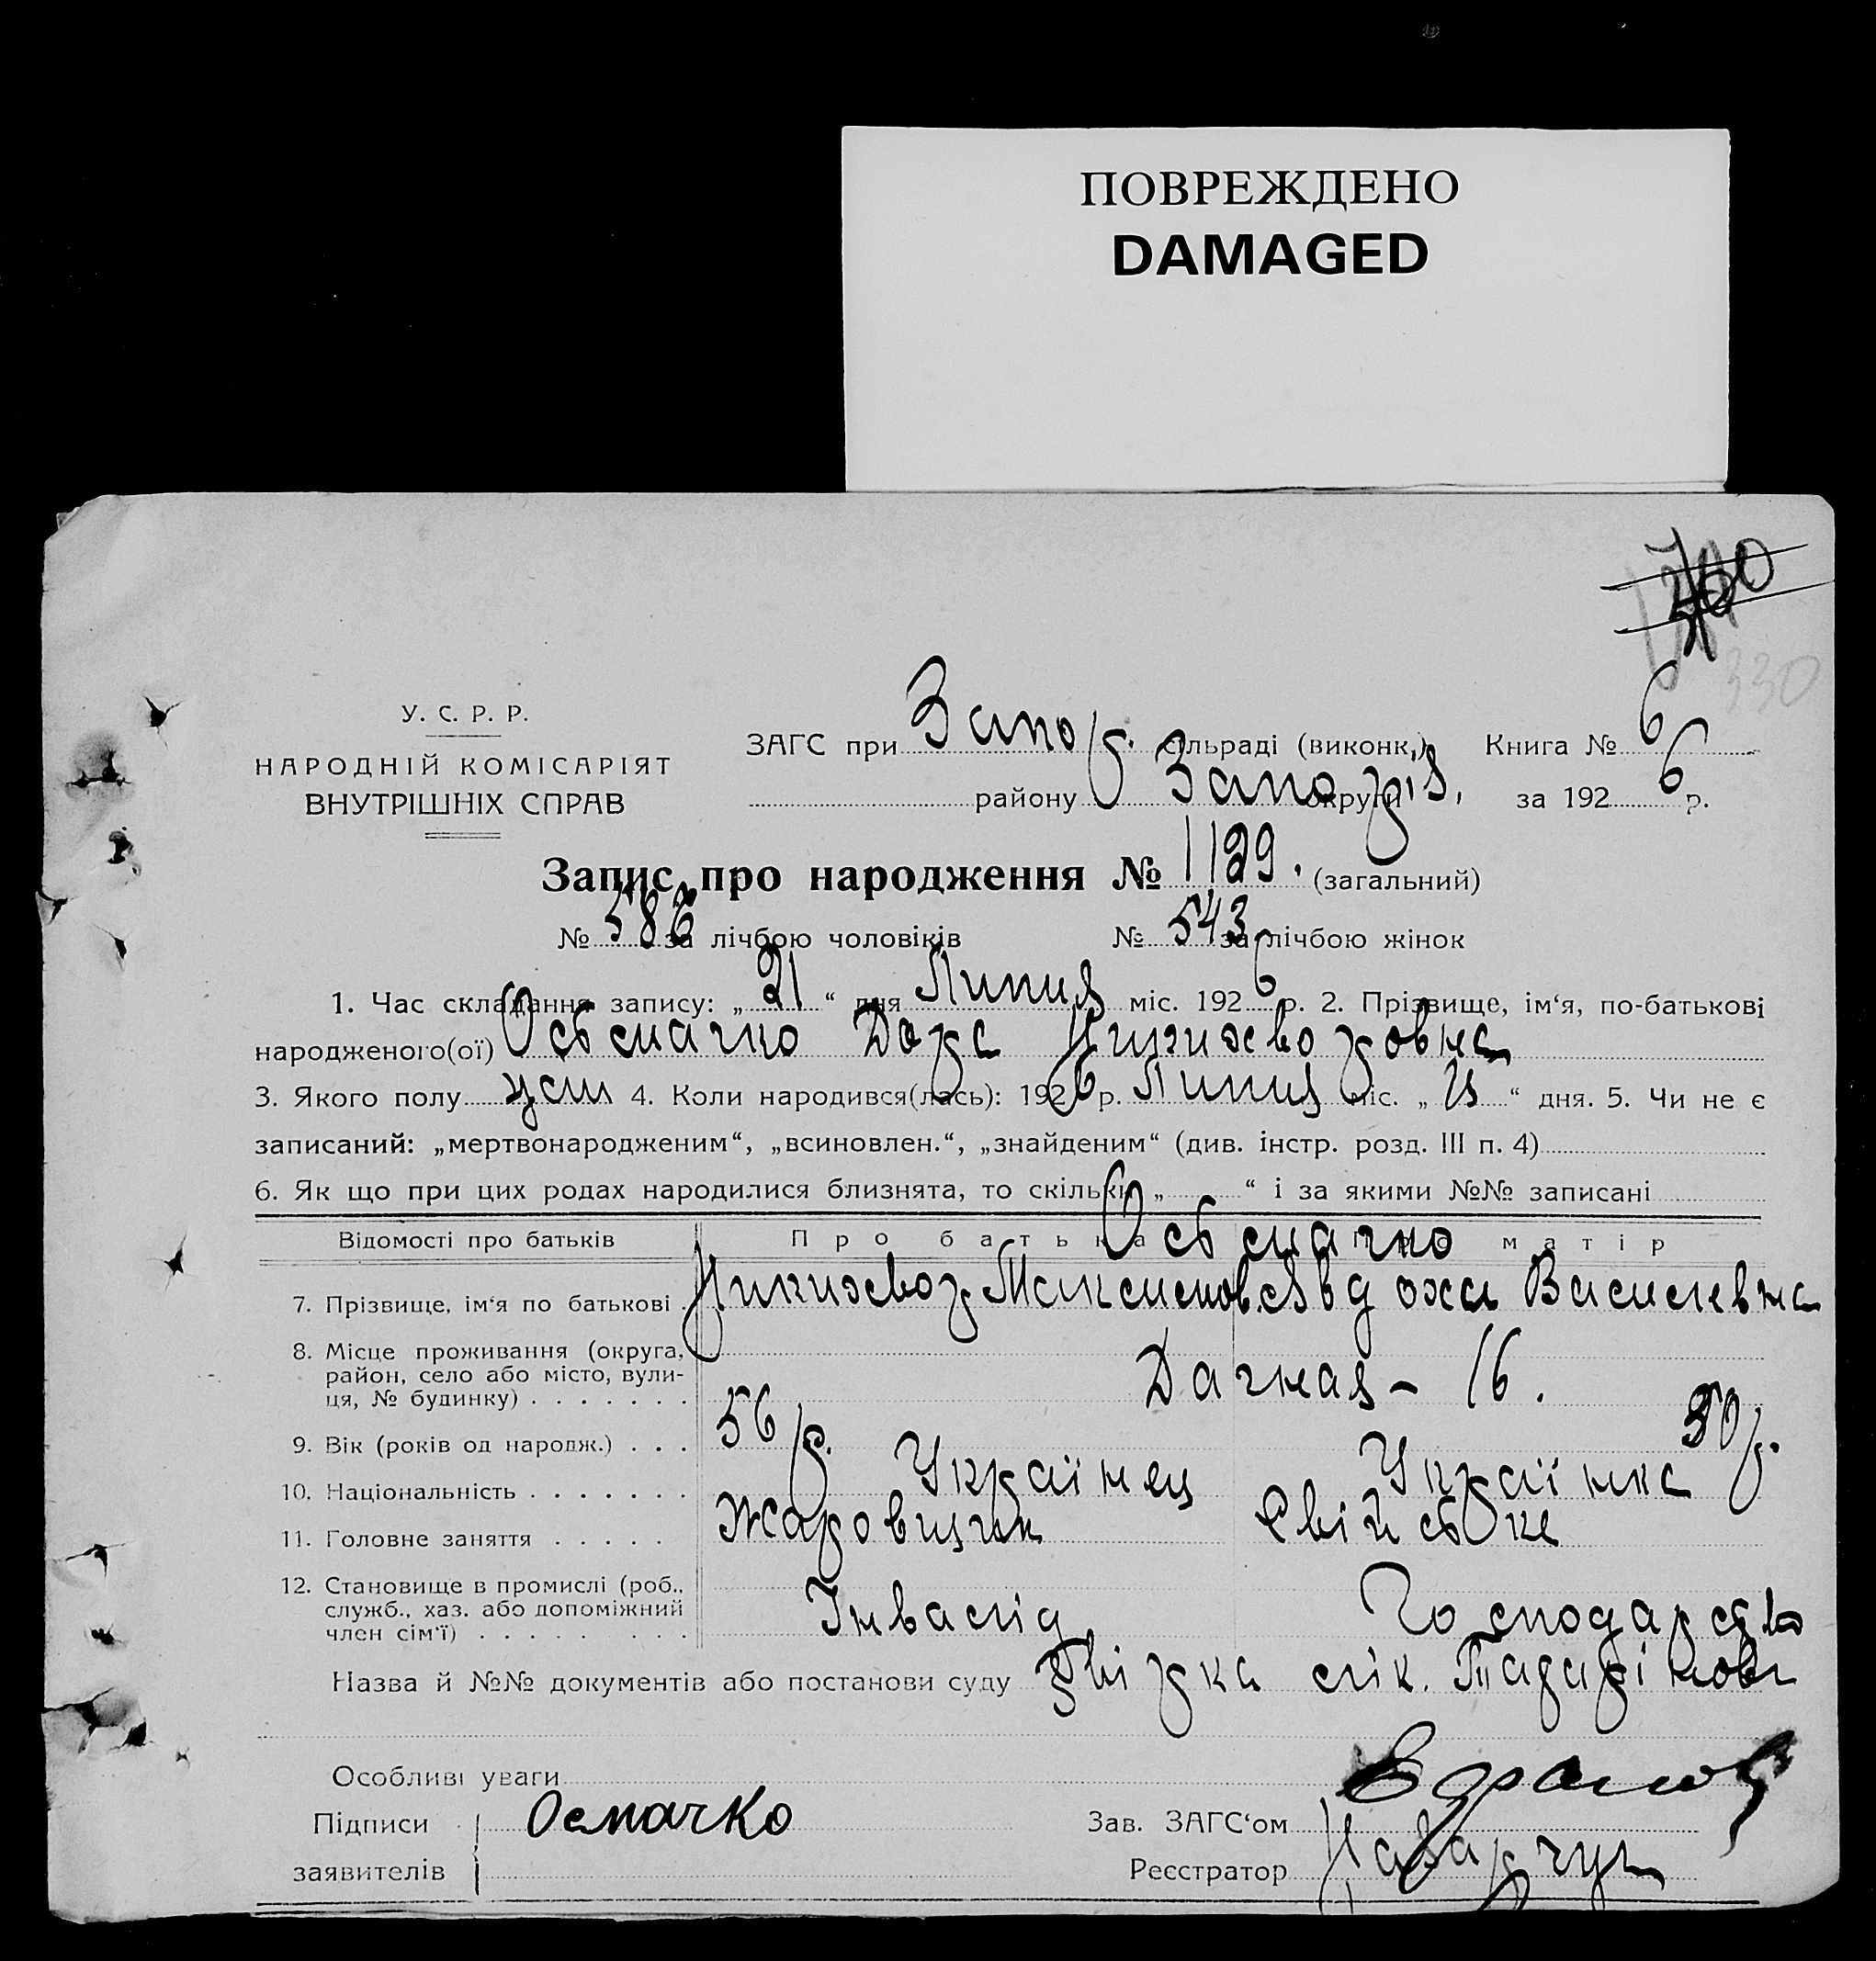 ПОВРЕЖДЕНО
DAMAGED
330
У. С. Р. Р.
НАРОДНІЙ КОМІСАРІЯТ
ВНУТРІШНІХ СПРАВ
ЗАГС при Запор. сільраді (виконк.) Книга № 6
району Запоріз. округи за 192 6 р.
Запис про народження № 1129. (загальний)
№ 586 за лічбою чоловіків № 543 за лічбою жінок
1. Час складання запису: „ 21 “ дня Липня міс. 192 6 р. 2. Прізвище, ім‘я, по-батькові
народженого(ої) Осьмачко Дора Никихворовна
3. Якого полу жін 4. Коли народився(лась): 192 6 р. Липня міс. „ “ дня. 5. Чи не є
записаний: „мертвонародженим“, „всиновлен.“, „знайденим“ (див. інстр. розд. III п. 4)
6. Як що при цих родах народилися близнята, то скільки „ “ і за якими №№ записані
Відомості про батьків Про батька Про матір
Осьмачко
7. Прізвище, ім‘я по батькові Никихвор Максимов. Явдоха Василевна
8. Місце проживання (округа,
район, село або місто, вули-
ця, № будинку) Дачная - 16.
9. Вік (років од народж.) 56 р. 30 р.
10. Національність Українец Українка
11. Головне заняття Жаровщик Свійське
12. Становище в промислі (роб.,
служб., хаз. або допоміжний
член сім‘ї) Інвалід Господарство
Назва й №№ документів або постанови суду лік.
Особливі уваги
Підписи Осмачко Зав. ЗАГС‘ом
заявителів Реєстратор Назарчук